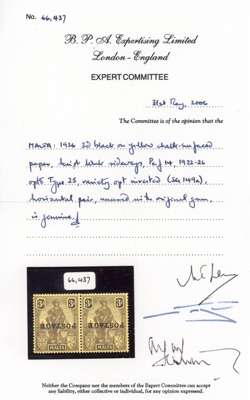 No. 66,437
B. P. A. Expertising Limited
London - England
EXPERT COMMITTEE
31st May, 2006
The Committee is of the opinion that the
MALTA: 1926 3d black on yellow chalk-surfaced
paper, sideways, Perf 14, 1922-26
opt Type 25, variety opt inverted (SG 149a),
horizontal pair, unused with original gum,
is genuine.
66,437
POSTAGE POSTAGE
MALTA MALTA
Neither the Company nor the members of the Expert Committee can accept
any liability, either collective or individual, for any opinion expressed.